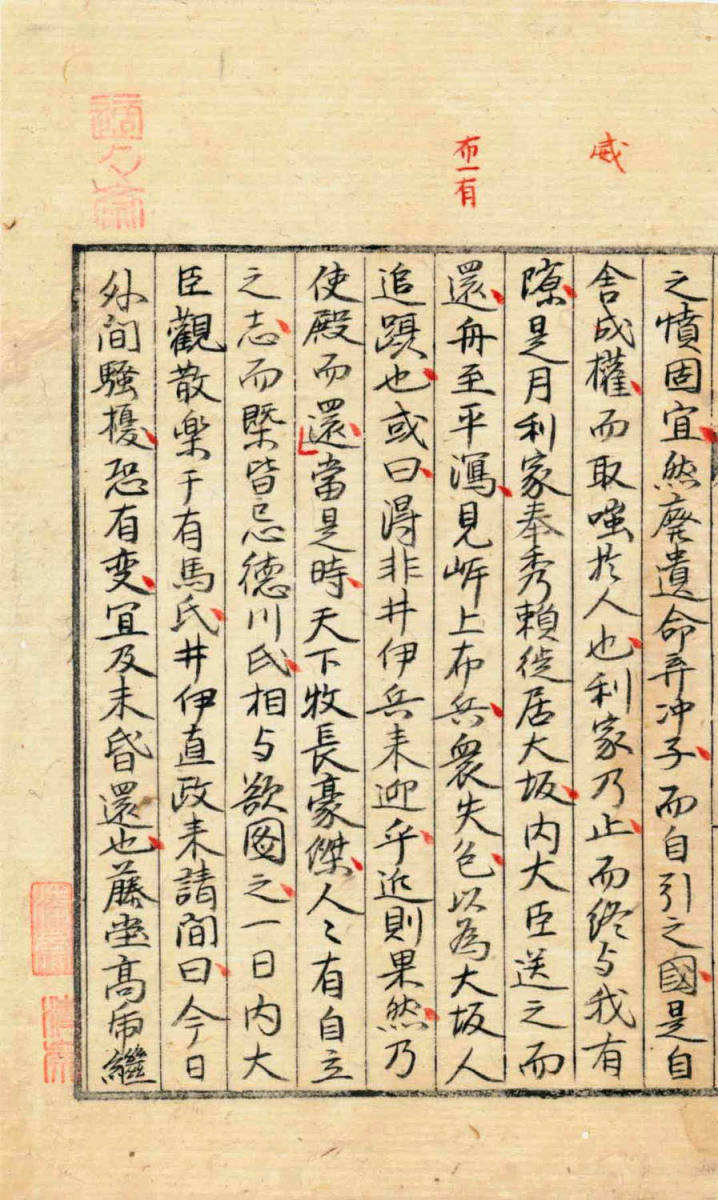 威
布一有
之憤固宜然廃遺命弃冲子而自引之國是自
舎成權而取嗤於人也利家乃止而終与我有
隙是月利家奉秀頼徙居大坂内大臣送之而
還舟至平潟見岍上布兵衆失色以為大坂人
追躡也或曰得非井伊兵来迎乎近則果然乃
使殿而還當是時天下牧長豪傑人〻有自立
之志而槩皆忌德川氏相与欲圖之一日内大
臣觀散楽于有馬氏井伊直政来請間曰今日
外間騒擾恐有変宜及未昏還也藤堂高虎継